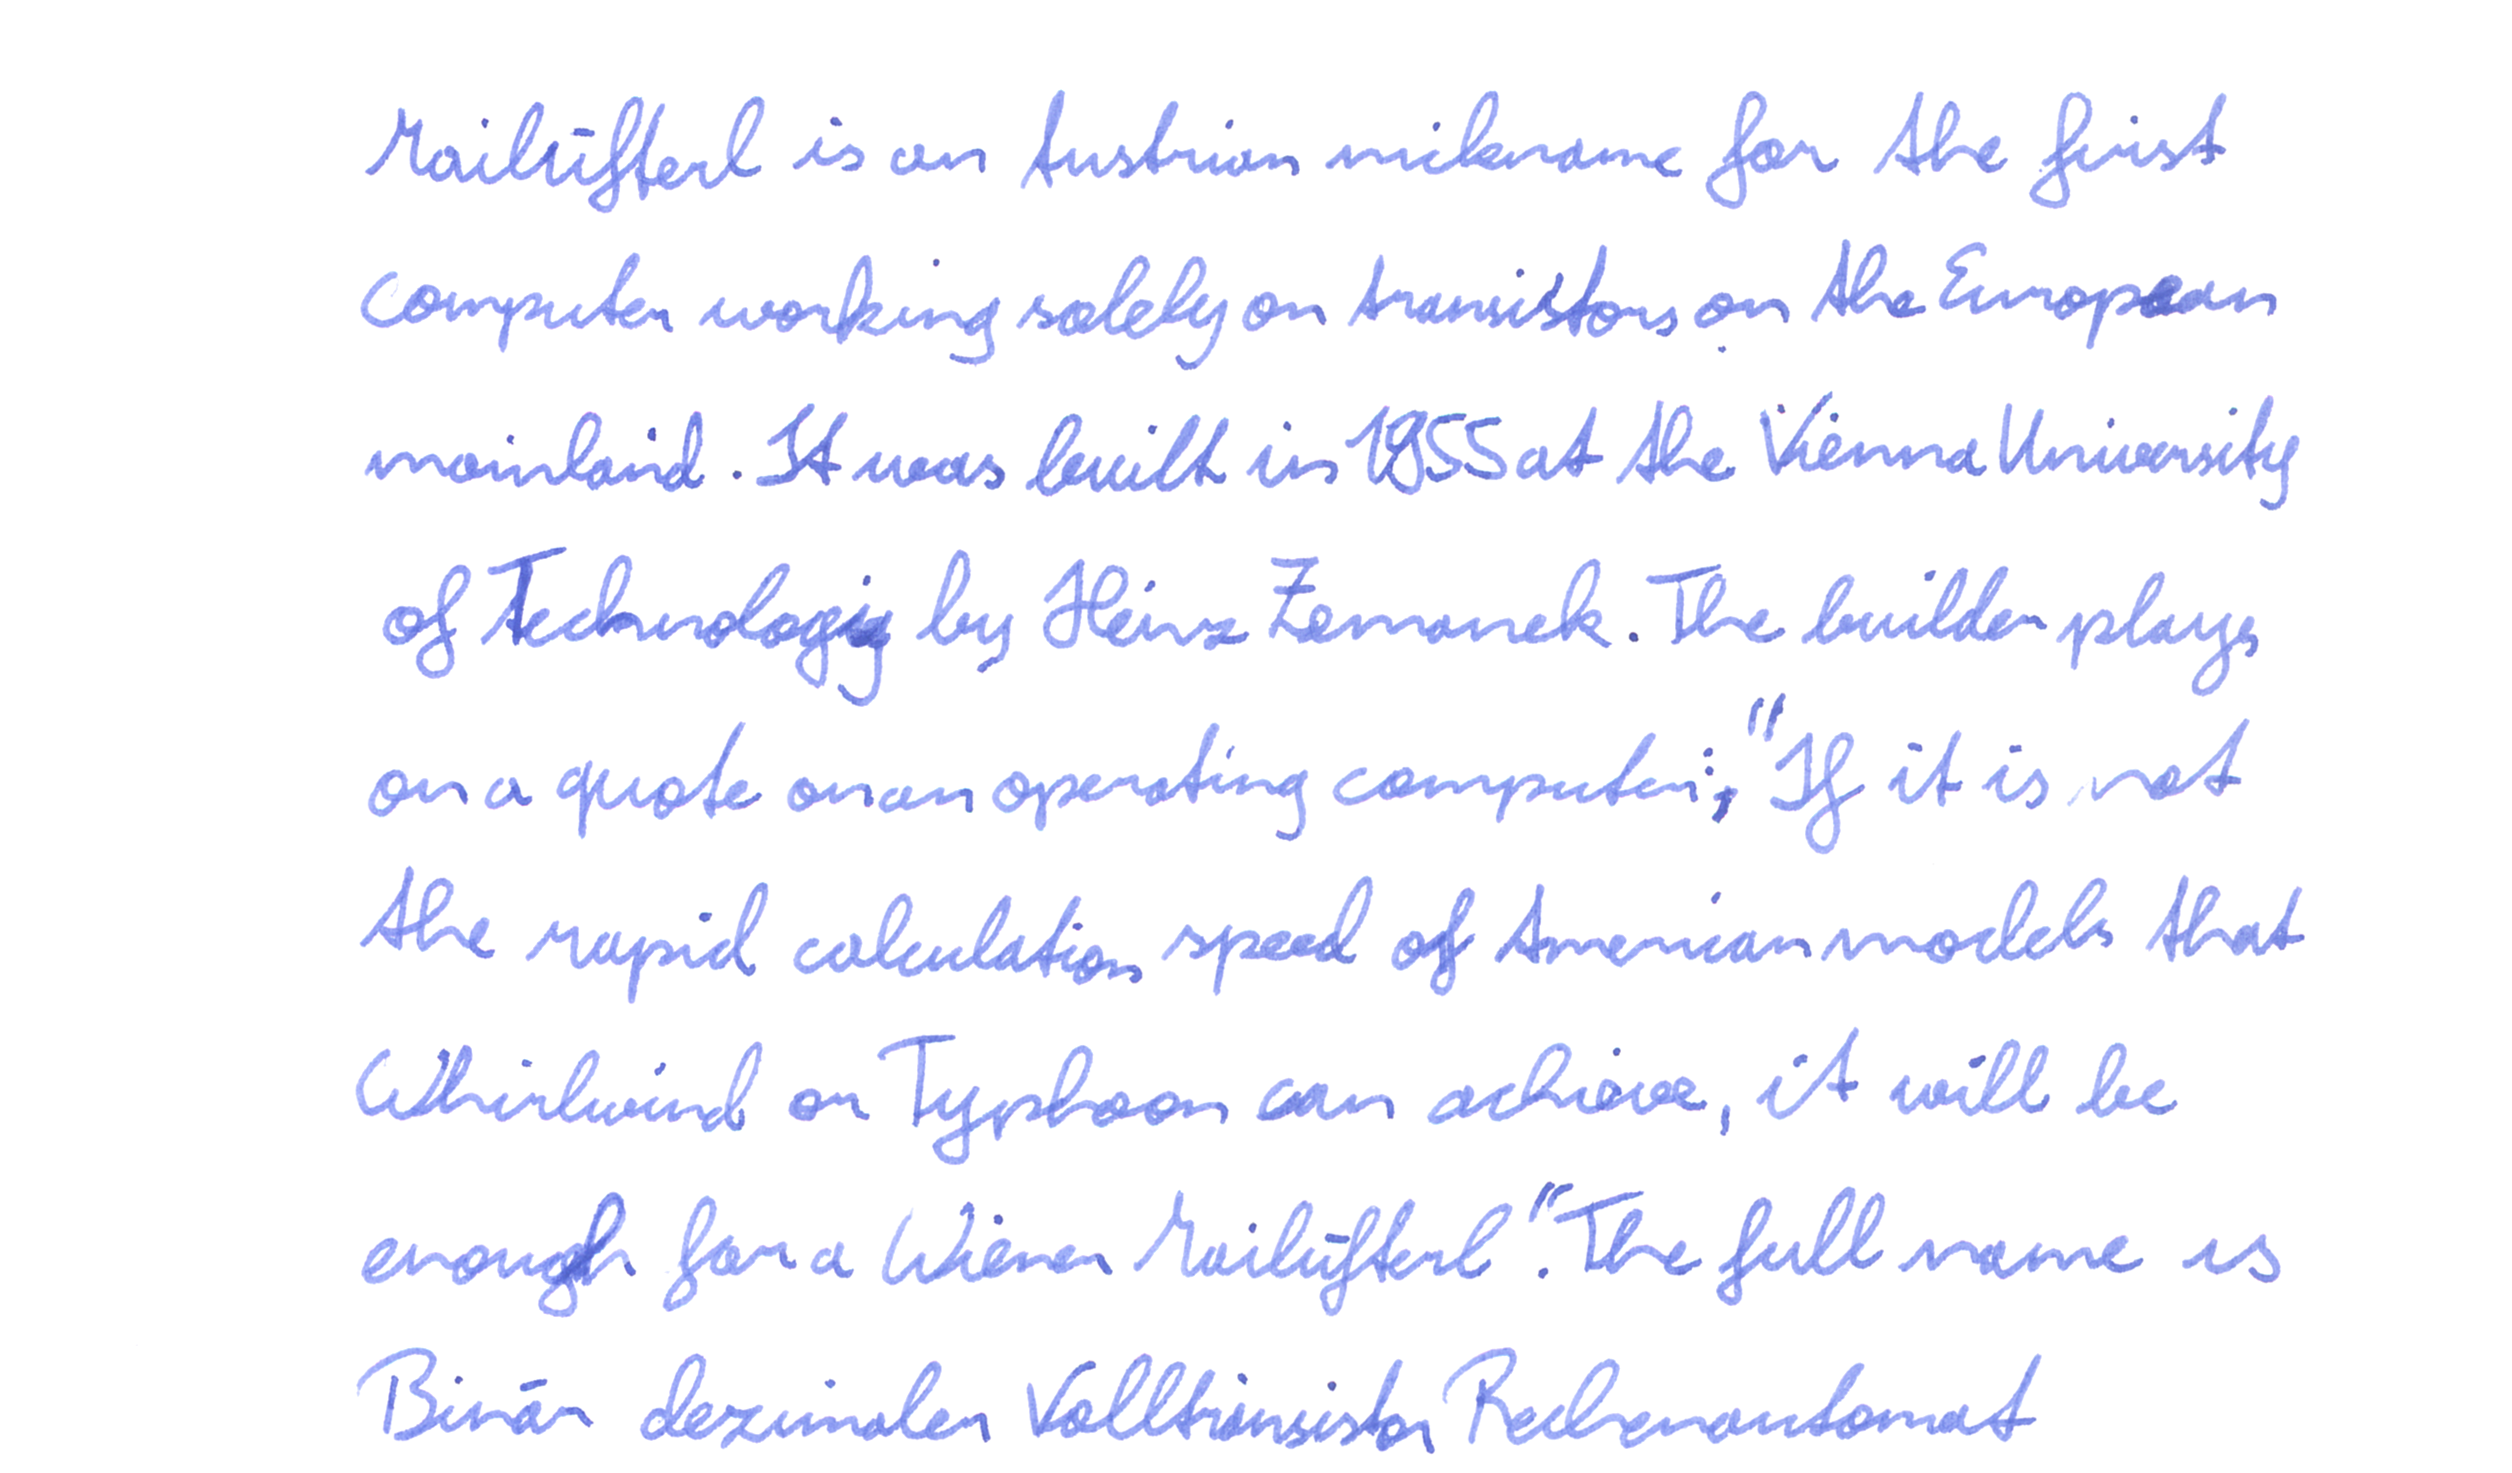 Mailüfterl is an Austrian nickname for the first
computer working solely on transistors on the European
mainland. It was built in 1955 at the Vienna University
of Technology by Heinz Zemanek. The builder plays
on a quote on an operating computer; "If it is not
the rapid calculation speed of American models that
Whirlwind or Typhoon can achieve, it will be
enough for a Wiener Mailüfterl". The full name is
Binär dezimaler Volltransistor Rechenautomat